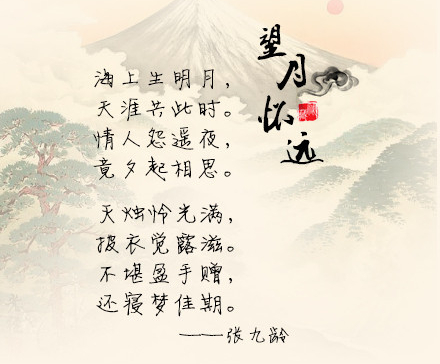 望月怀远
海上生明月，
天涯共此时。
情人怨遥夜，
竟夕起相思。
灭烛怜光满，
披衣觉露滋。
不堪盈手赠，
还寝梦佳期。
——张九龄